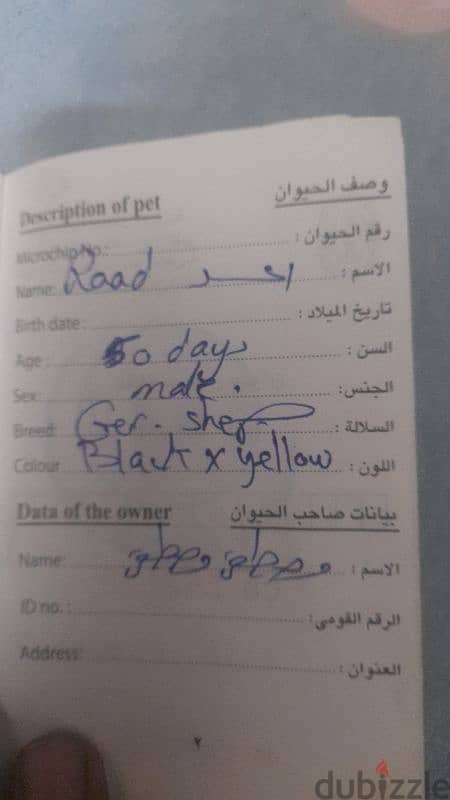 Description of pet وصف الحيوان
Microchip No.: رقم الحيوان :
Name: Raad الاسم :
Birth date : تاريخ الميلاد :
Age : 50 days السن :
Sex: male . الجنس:
Breed: Ger. shep السلالة :
Colour Black x yellow اللون :
Data of the owner بيانات صاحب الحيوان
Name: الاسم :
ID no. : الرقم القومى:
Address: العنوان :
٢
dubizzle